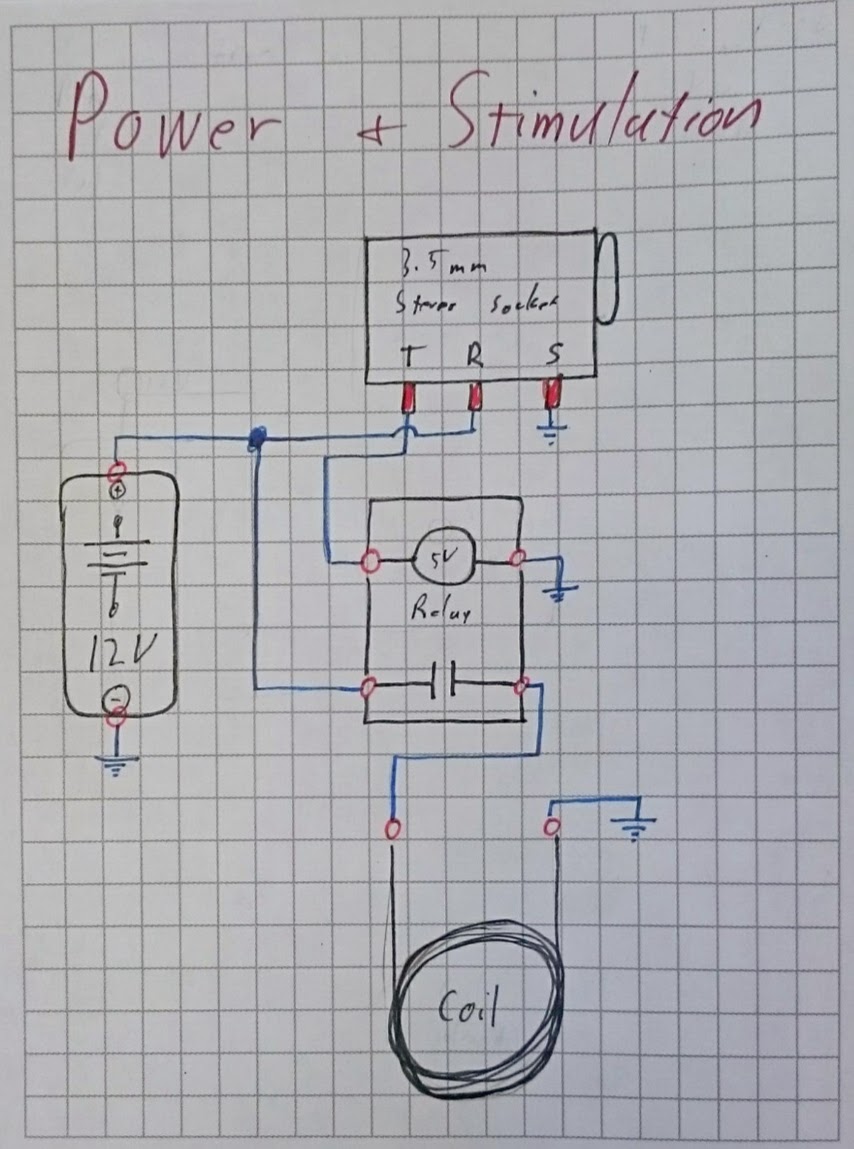 Power + Stimulation
3.5mm
Stereo Socket
T R S
+
5V
Relay
12V
-
Coil